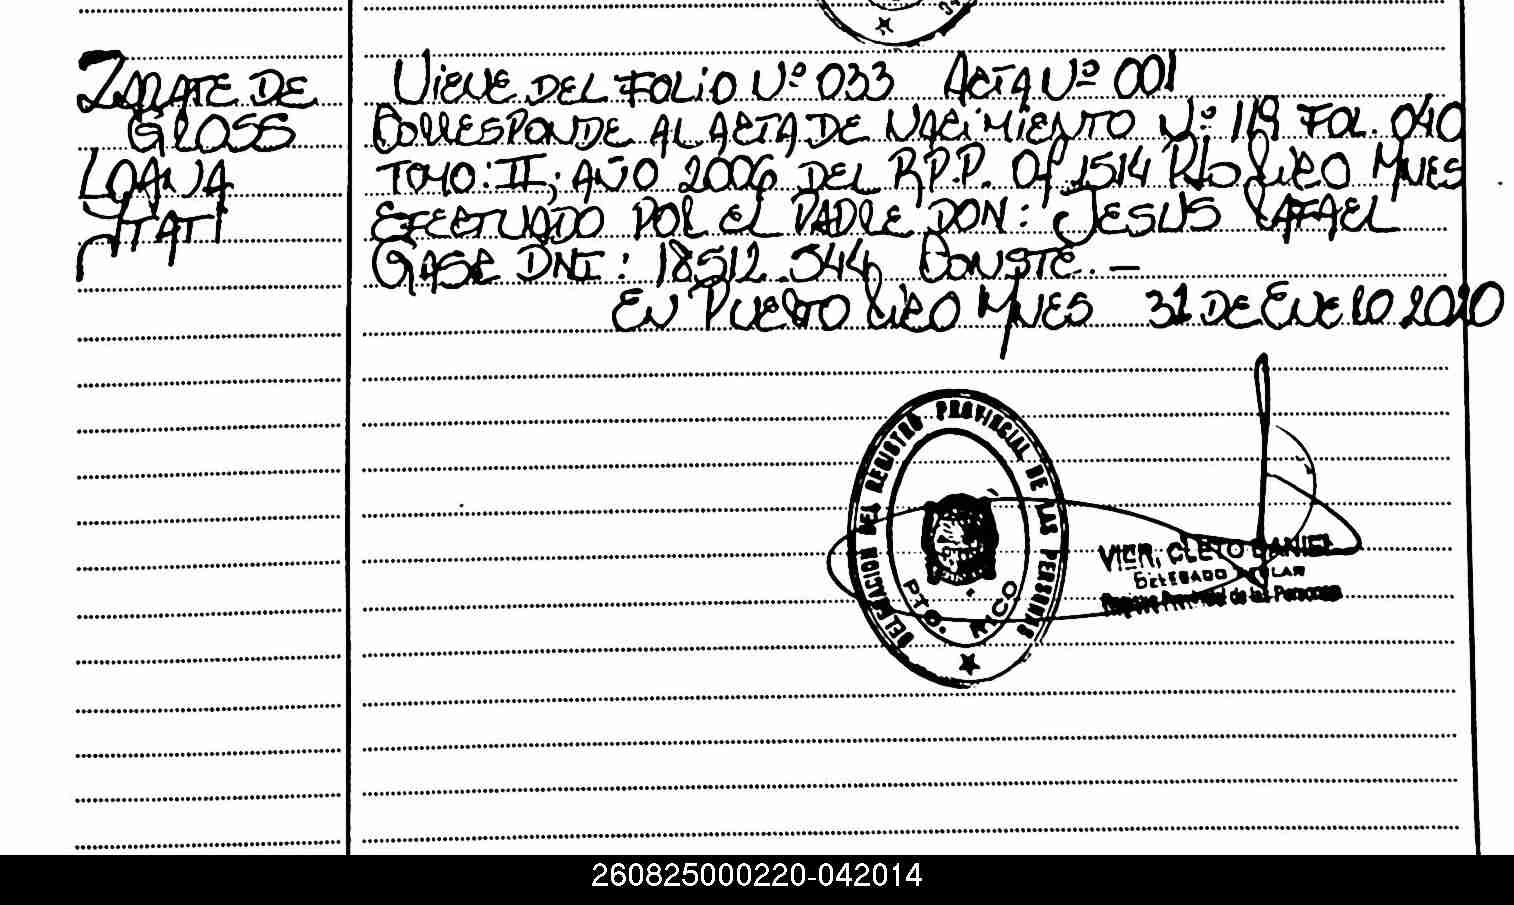 ZARATE DE
GROSS
LOANA
ITATI
VIENE DEL FOLIO Nº 033 ACTA Nº 001
CORRESPONDE AL ACTA DE NACIMIENTO Nº 119 FOL. 040
TOMO: II; AÑO 2006 DEL R.P.P. Of 1514 Pto RICO MNES
EFECTUADO POR EL PADRE DON: JESUS RAFAEL
DNI: 18.512.544 CONSTE. —
EN PUERTO RICO MNES 31 DE ENERO 2020
DELEGACION DEL REGISTRO PROVINCIAL DE LAS PERSONAS
PTO. RICO
VIER, CLETO DANIEL
DELEGADO TITULAR
Registro Provincial de las Personas
260825000220-042014